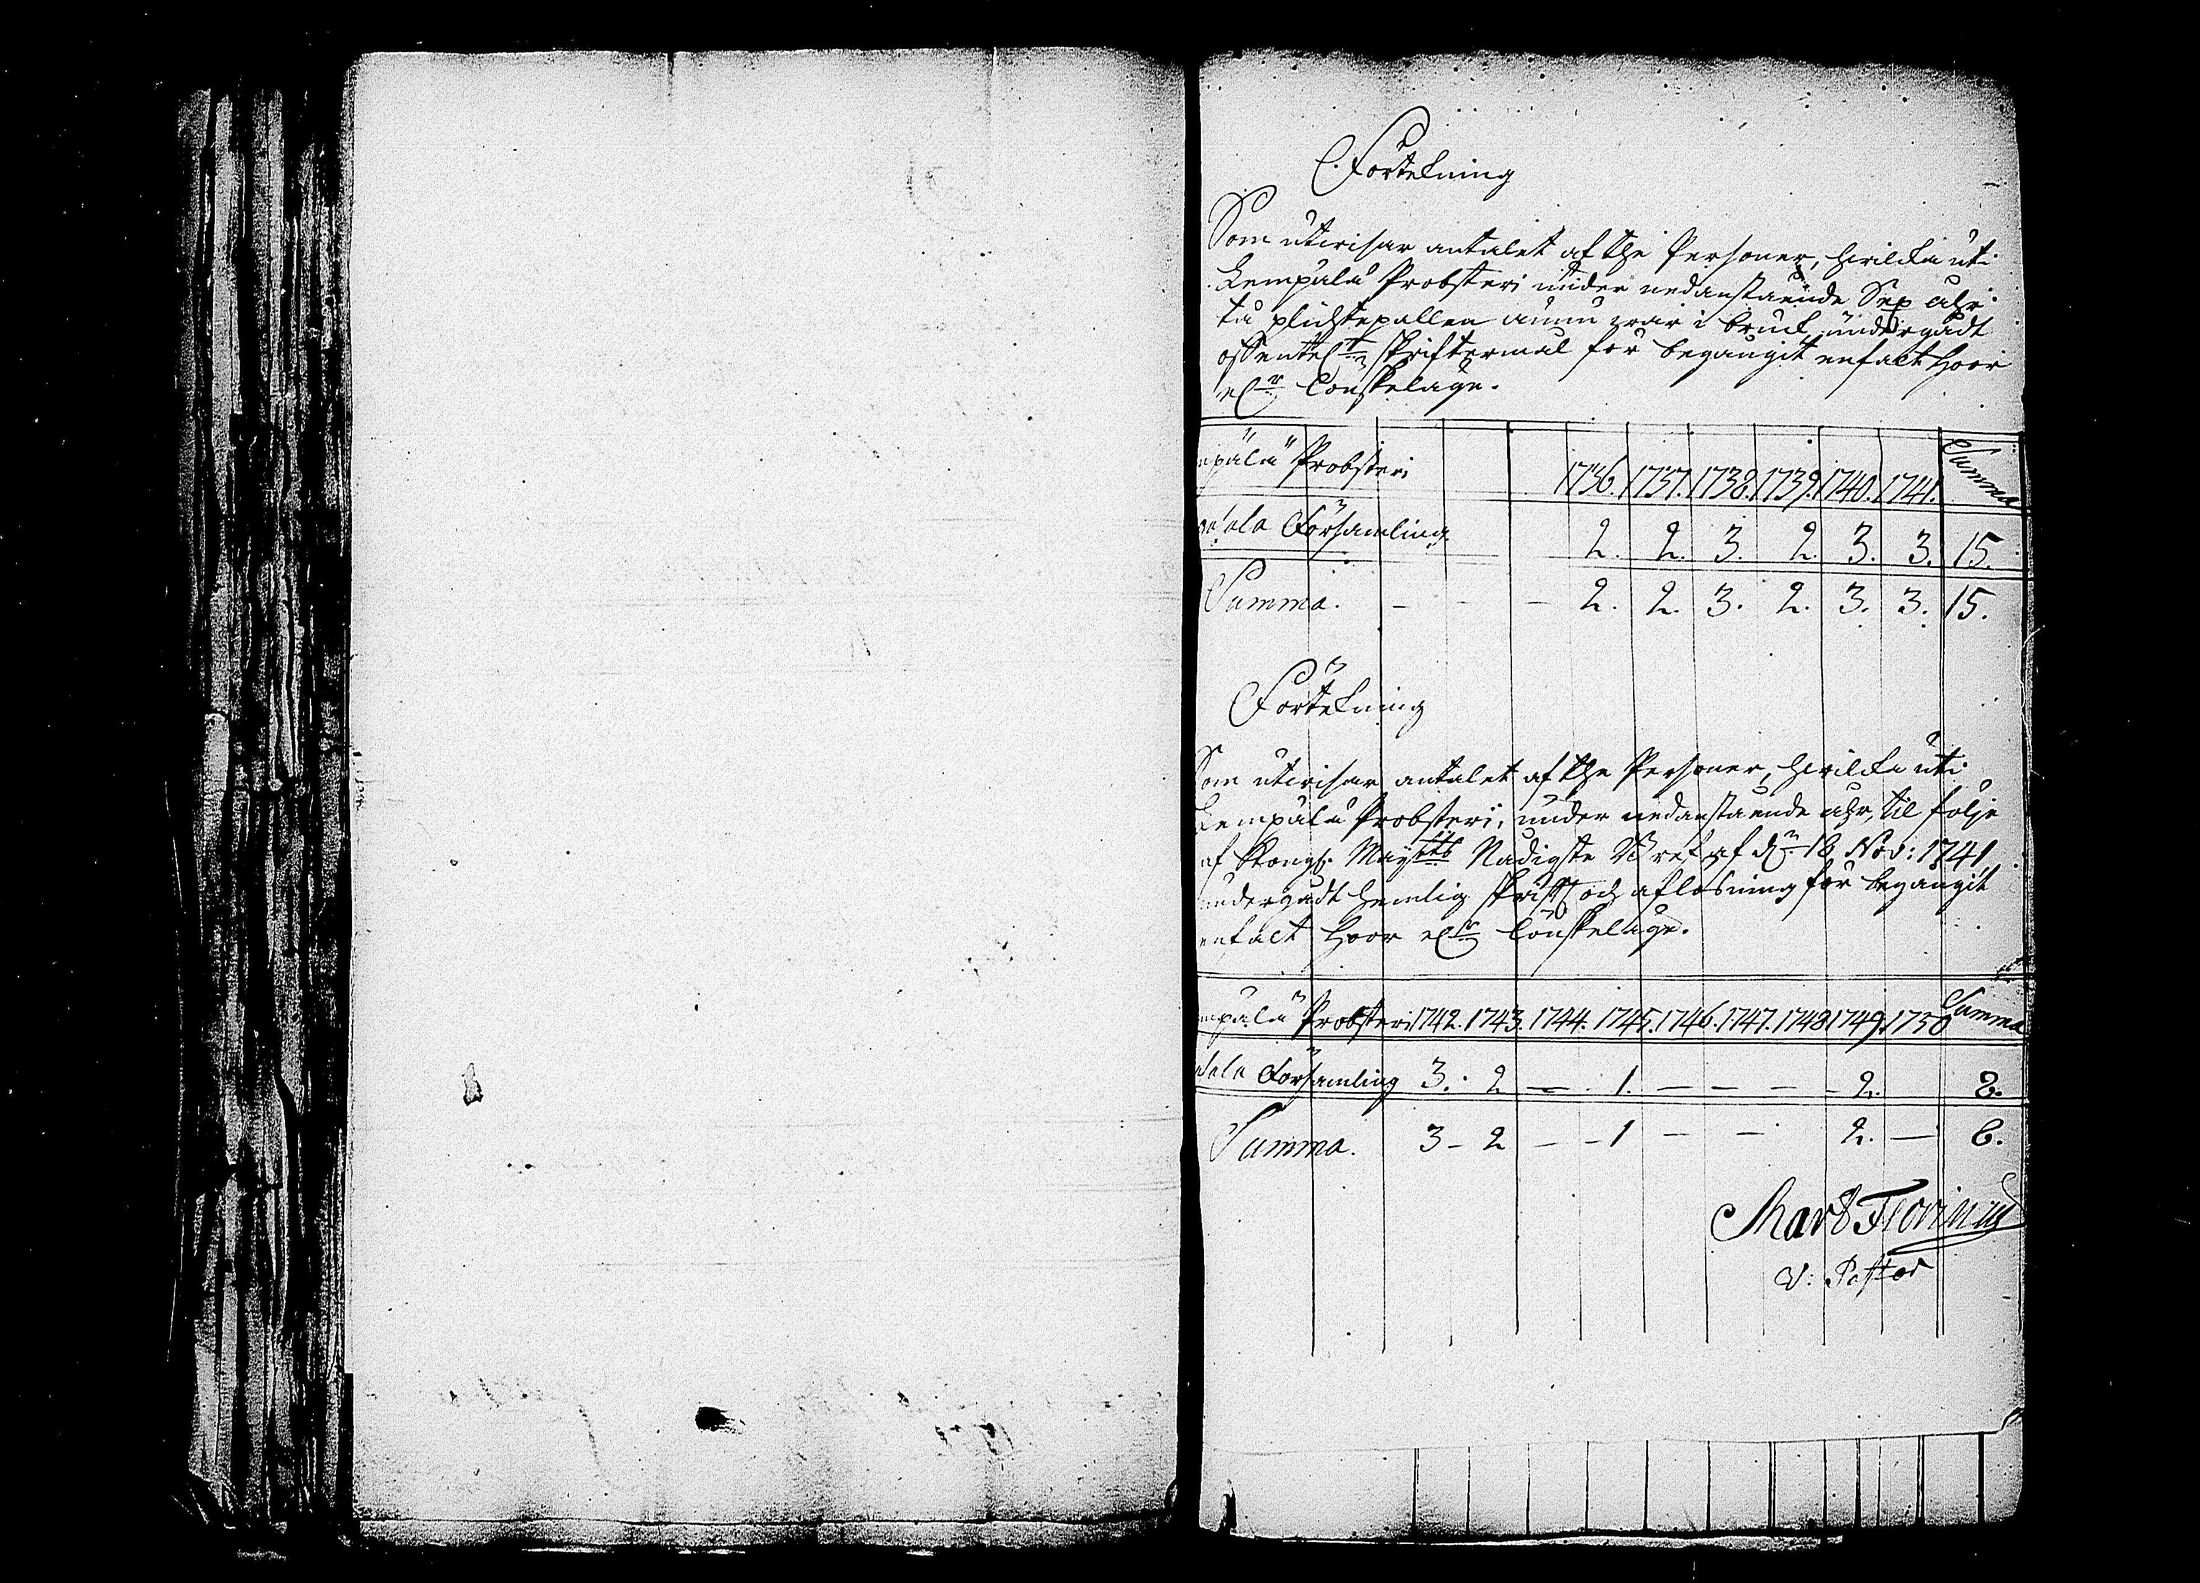 Förtekning
Som utvisar antalet af the Personer, hvilka uti
Lempälä Probsteri under nedanstående Sex Åhr
tå plichtepallen ännu war i bruck, undergådt
offentel. skriftermål för begångit enfalt Hoor
elr Lönskeläge.
mpälä Probsteri 1736. 1737. 1738. 1739. 1740. 1741. Summa
Församling 2. 2. 3. 2. 3. 3. 15.
Summa. - - - 2. 2. 3. 2. 3. 3. 15.
Förtekning
Som utvisar antalet af the Personer, hvilka uti
Lempälä Probsteri, under nedanstående åhr, til följe
af Kongl. May:tts Nådigste Bref af dn 18 Nov: 1741,
undergådt hemlig skrift och aflösning för begångit
enfalt Hoor elr Lönskeläge.
mpälä Probsteri 1742. 1743. 1744. 1745. 1746. 1747. 1748 1749. 1750 Summa
Församling 3. 2 — 1. — — — 2. 8.
Summa. 3 - 2 — - 1 — — 2. — 8.
V: Pastor